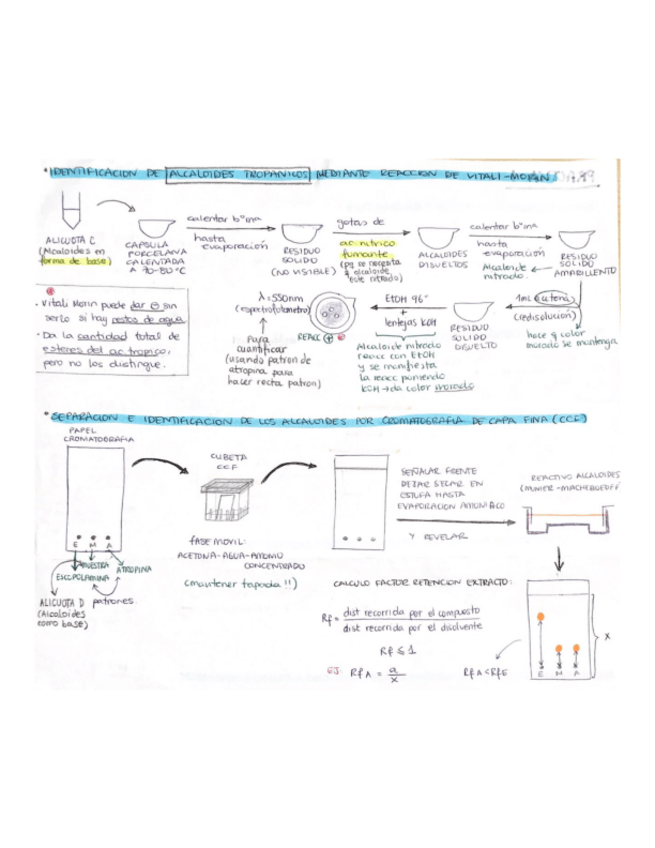 • IDENTIFICACION DE ALCALOIDES TROPANICOS MEDIANTE REACCION DE VITALI-MORIN
ALICUOTA C
(Alcaloides en
forma de base)
CAPSULA
PORCELANA
CALENTADA
A 70-80°C
calentar bºma
hasta
evaporación
RESIDUO
SOLIDO
(NO VISIBLE)
gotas de
ac nítrico
fumante
(pq se necesita
alcaloide
nitrado)
ALCALOIDES
DISUELTOS
calentar bºma
hasta
evaporación
Alcaloide
nitrado
RESIDUO
SOLIDO
AMARILLENTO
1mL acetona
(redisolución)
hace q color
morado se mantenga
RESIDUO
SOLIDO
DISUELTO
EtOH 96°
+
lentejas KOH
Alcaloide nitrado
reacc con EtOH
y se manifiesta
la reacc poniendo
KOH → da color morado
REACC +
λ = 550nm
(espectrofotometro)
Para
cuantificar
(usando patron de
atropina para
hacer recta patron)
· Vitali Morin puede dar ⊖ sin
serlo si hay restos de agua
· Da la cantidad total de
esteres del ac tropico,
pero no los distingue.
• SEPARACION E IDENTIFICACION DE LOS ALCALOIDES POR CROMATOGRAFIA DE CAPA FINA (CCF)
PAPEL
CROMATOGRAFIA
E M A
MUESTRA
ATROPINA
ESCOPOLAMINA
ALICUOTA D
(Alcaloides
como base)
patrones
CUBETA
CCF
FASE MOVIL:
ACETONA-AGUA-AMONIO
CONCENTRADO
(mantener tapada !!)
SEÑALAR FRENTE
DEJAR SECAR EN
ESTUFA HASTA
EVAPORACION AMONIACO
Y REVELAR
REACTIVO ALCALOIDES
(MUNIER-MACHEBOEUFF
CALCULO FACTOR RETENCION EXTRACTO:
Rf = dist recorrida por el compuesto
dist recorrida por el disolvente
Rf ≤ 1
EJ: Rf A = a
x
Rf A < Rf E
x
E M A